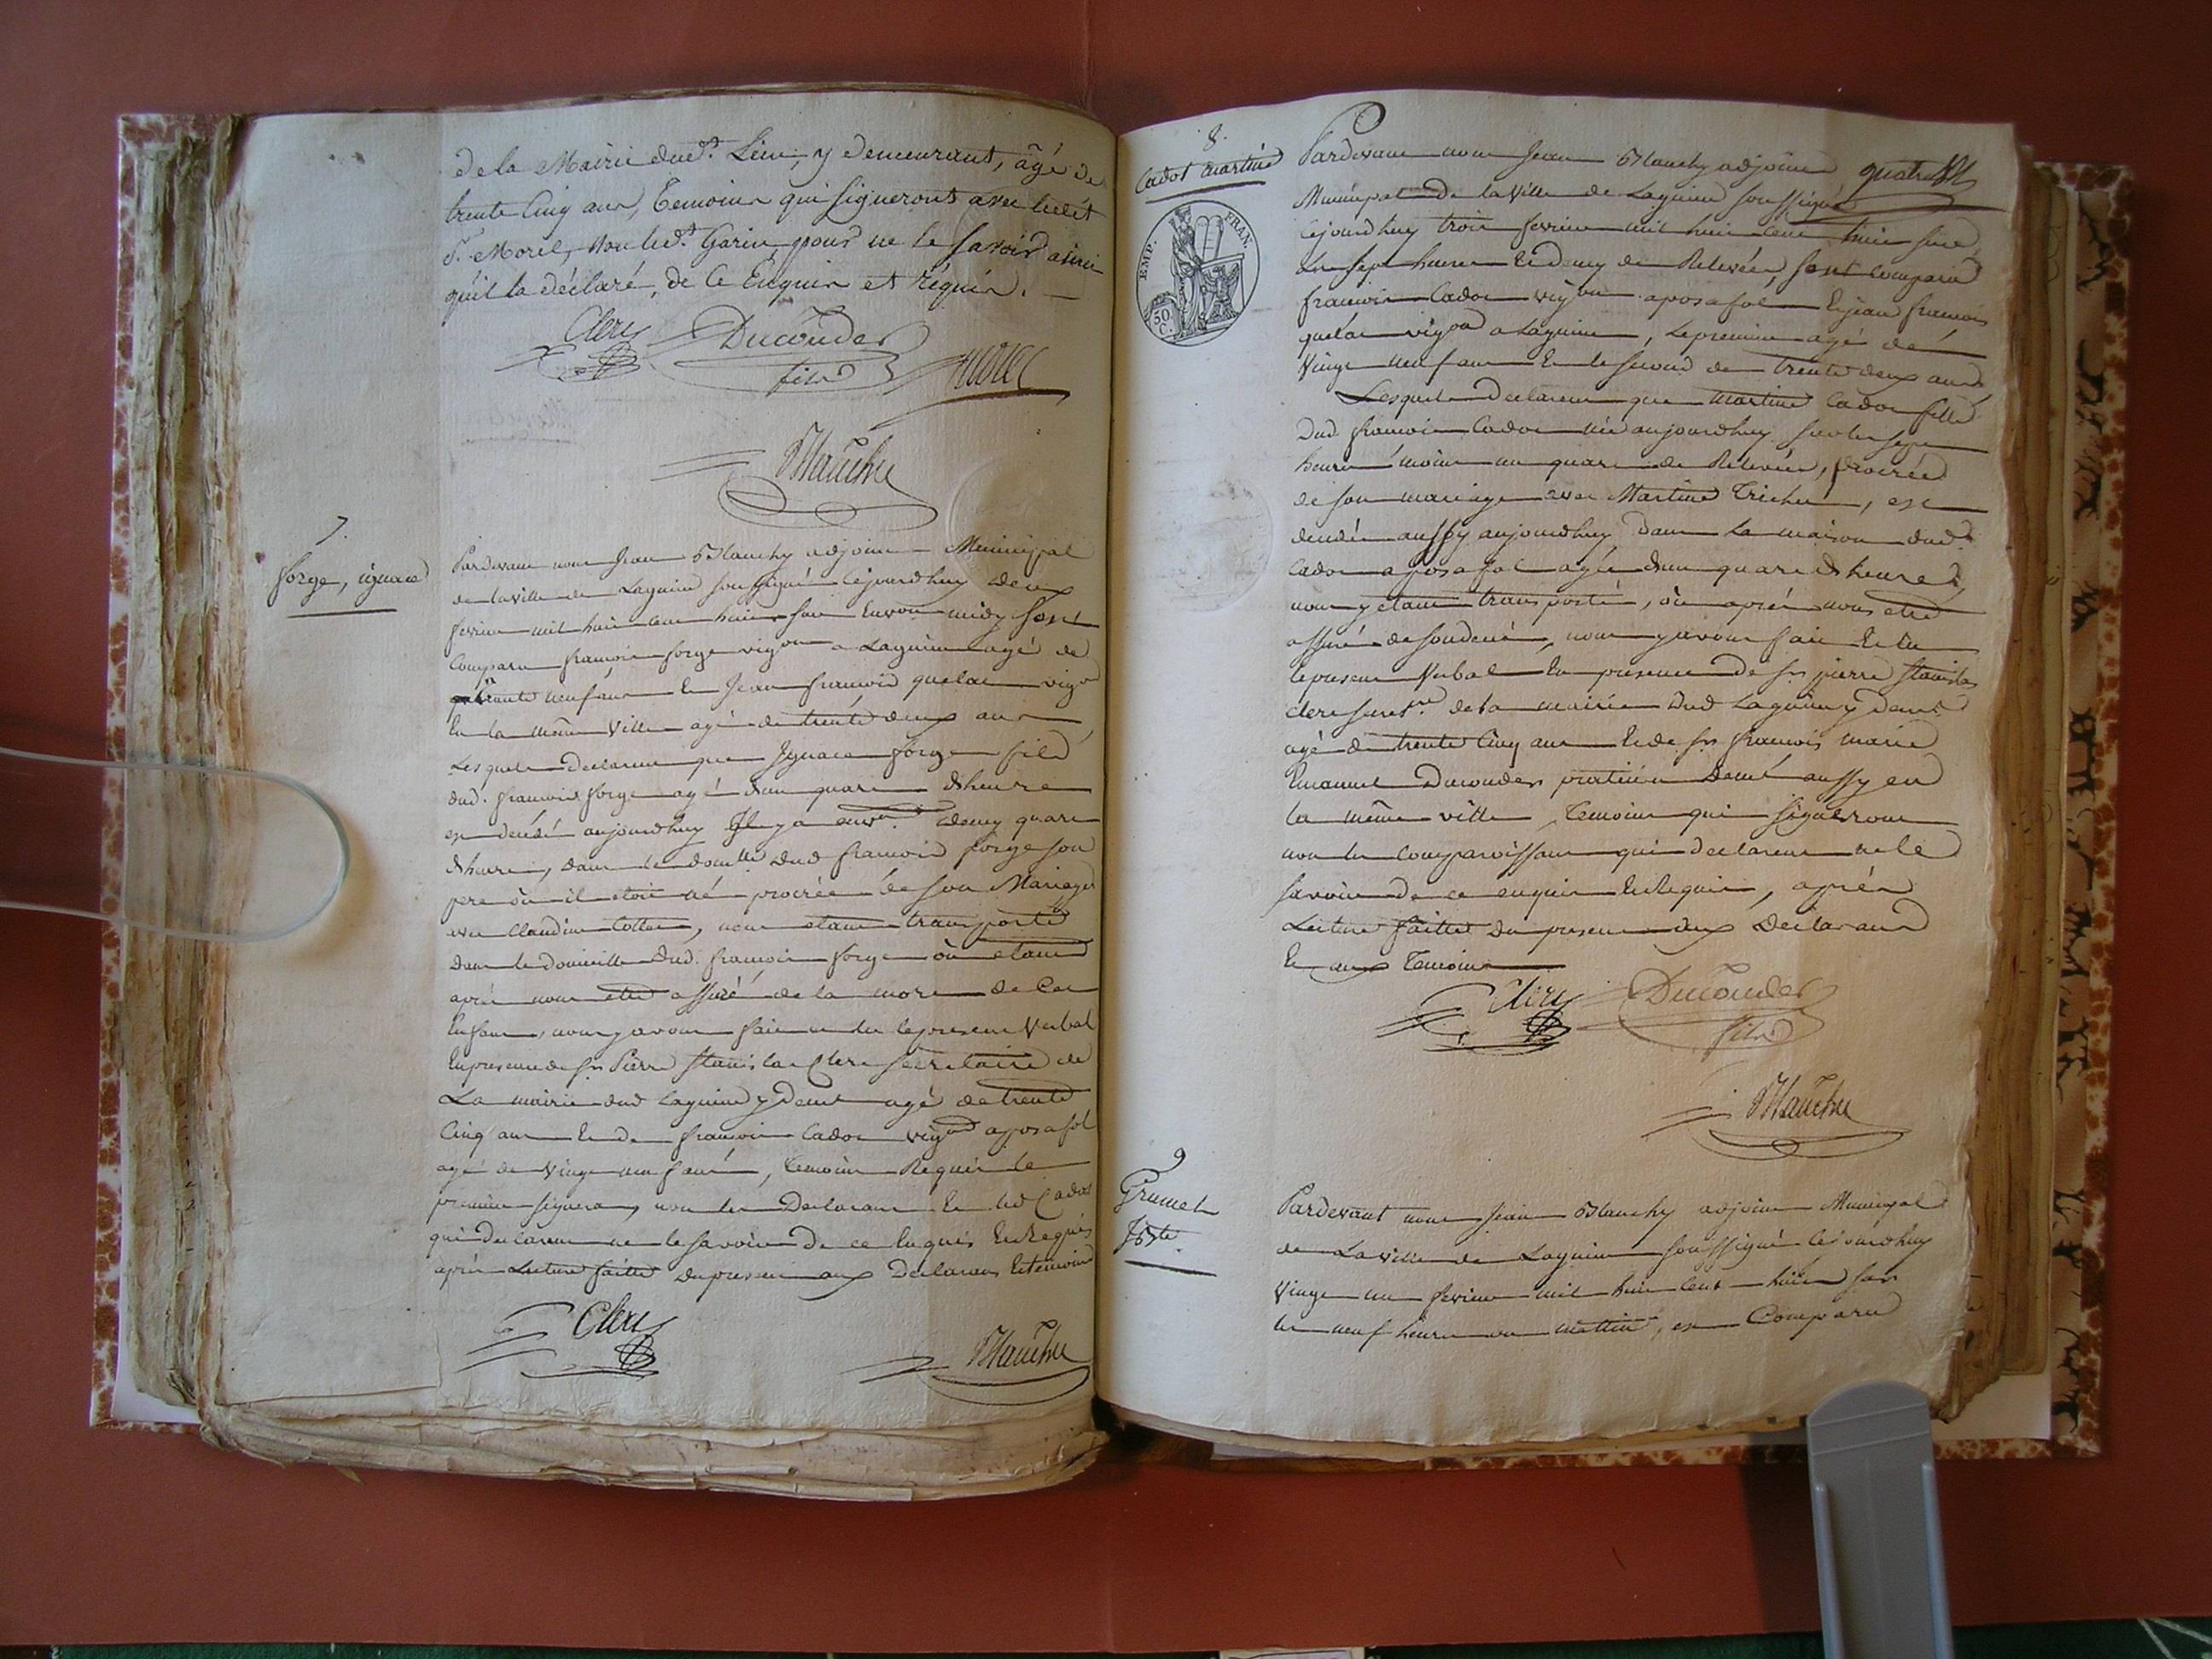 de la Mairie dud.t Lieu, y demeurant, âgé de
trente Cinq ans, Temoins qui signeront avec ledit
S.r Morel, non led.t Garin, pour ne le savoir ainsi
qu'il l'a déclaré, de Ce Enquis et réquis.
Clerc Ducouder
fils Morel
Blanchy
7.
forge, ignace
Pardevant nous Jean Blanchy adjoint Municipal
de la ville de Lagnieu soussigné Cejourdhuy deux
fevrier mil huit cent huit sur Environ midy sont
Comparu françois forge vigon a Lagnieu agé de
trante neuf ans Et Jean francois quelat vigon
En la même Ville agé de trente deux ans
Lesquels Declarent que Ignace forge fils
dud. francois forge agé d'un quart d'heure
est decédé aujourdhuy Il y a env.on demy quart
d'heure, dans le domille dud francois forge son
pere où il etoit né procrée de son Mariage
avec Claudine Collet, nous etant transporté
dans le domicille dud. francois forge où etant
après nous etre assuré de la mort de Cet
Enfant, nous y avons fait et lu le present Verbal
En presence de s.r Pierre Stanislas Clerc secretaire de
La mairie dud Lagnieu y demt agé de trente
Cinq ans Et de francois Cadot vigon a posafol
agé de Vingt neuf ans, temoins Requis le
premier signera, non les Declarans Et led Cadot
qui declarent ne le savoir De ce Enquis Et Requis
après Lecture faitte du present aux Declarans Et temoins
Clerc Blanchy
8.
Cadot martine
EMP. FRAN.
50 C.
quatre
Pardevant nous Jean Blanchy adjoint
Municipal De la Ville de Lagnieu soussigné
Cejourdhuy trois fevrier mil huit cent huit sur
les sept heures Et Demy de Relevée, sont comparu
francois Cadot vigon a posafol Et jean francois
quelat vigon a Lagnieu, le premier agé de
Vingt neuf ans Et le second de trente deux ans
Lesquels Declarent que Martine Cadot fille
Dud. francois Cadot née aujourdhuy sur les sept
heures moins un quart de Relevée, procréé
de son mariage avec Martine Trichet, est
decedée aussy aujourdhuy dans la maison dud.t
Cadot a posafol agée d'un quart d'heure,
nous y etant transporté, où après nous etre
assuré de son decès, nous y avons fait Et lu
le present Verbal En presence de s.r pierre Stanislas
clerc secret.re de la mairie Dud Lagnieu y demt
agé de trente Cinq ans Et de s.r francois marie
Emanuel Ducouder praticien Demt aussy en
la même ville, Temoins qui signeront
non les Comparoissant qui declarent ne le
savoir De ce enquis Et Requis, après
Lecture faitte du present aux Declarans
Et aux Temoins
Clerc Ducouder
fils
Blanchy
9
Grumet
Pardevant nous Jean Blanchy adjoint Municipal
de La ville de Lagnieu soussigné Cejourdhuy
Vingt un fevrier mil huit cent huit sur
les neuf heures du mattin, est Comparu